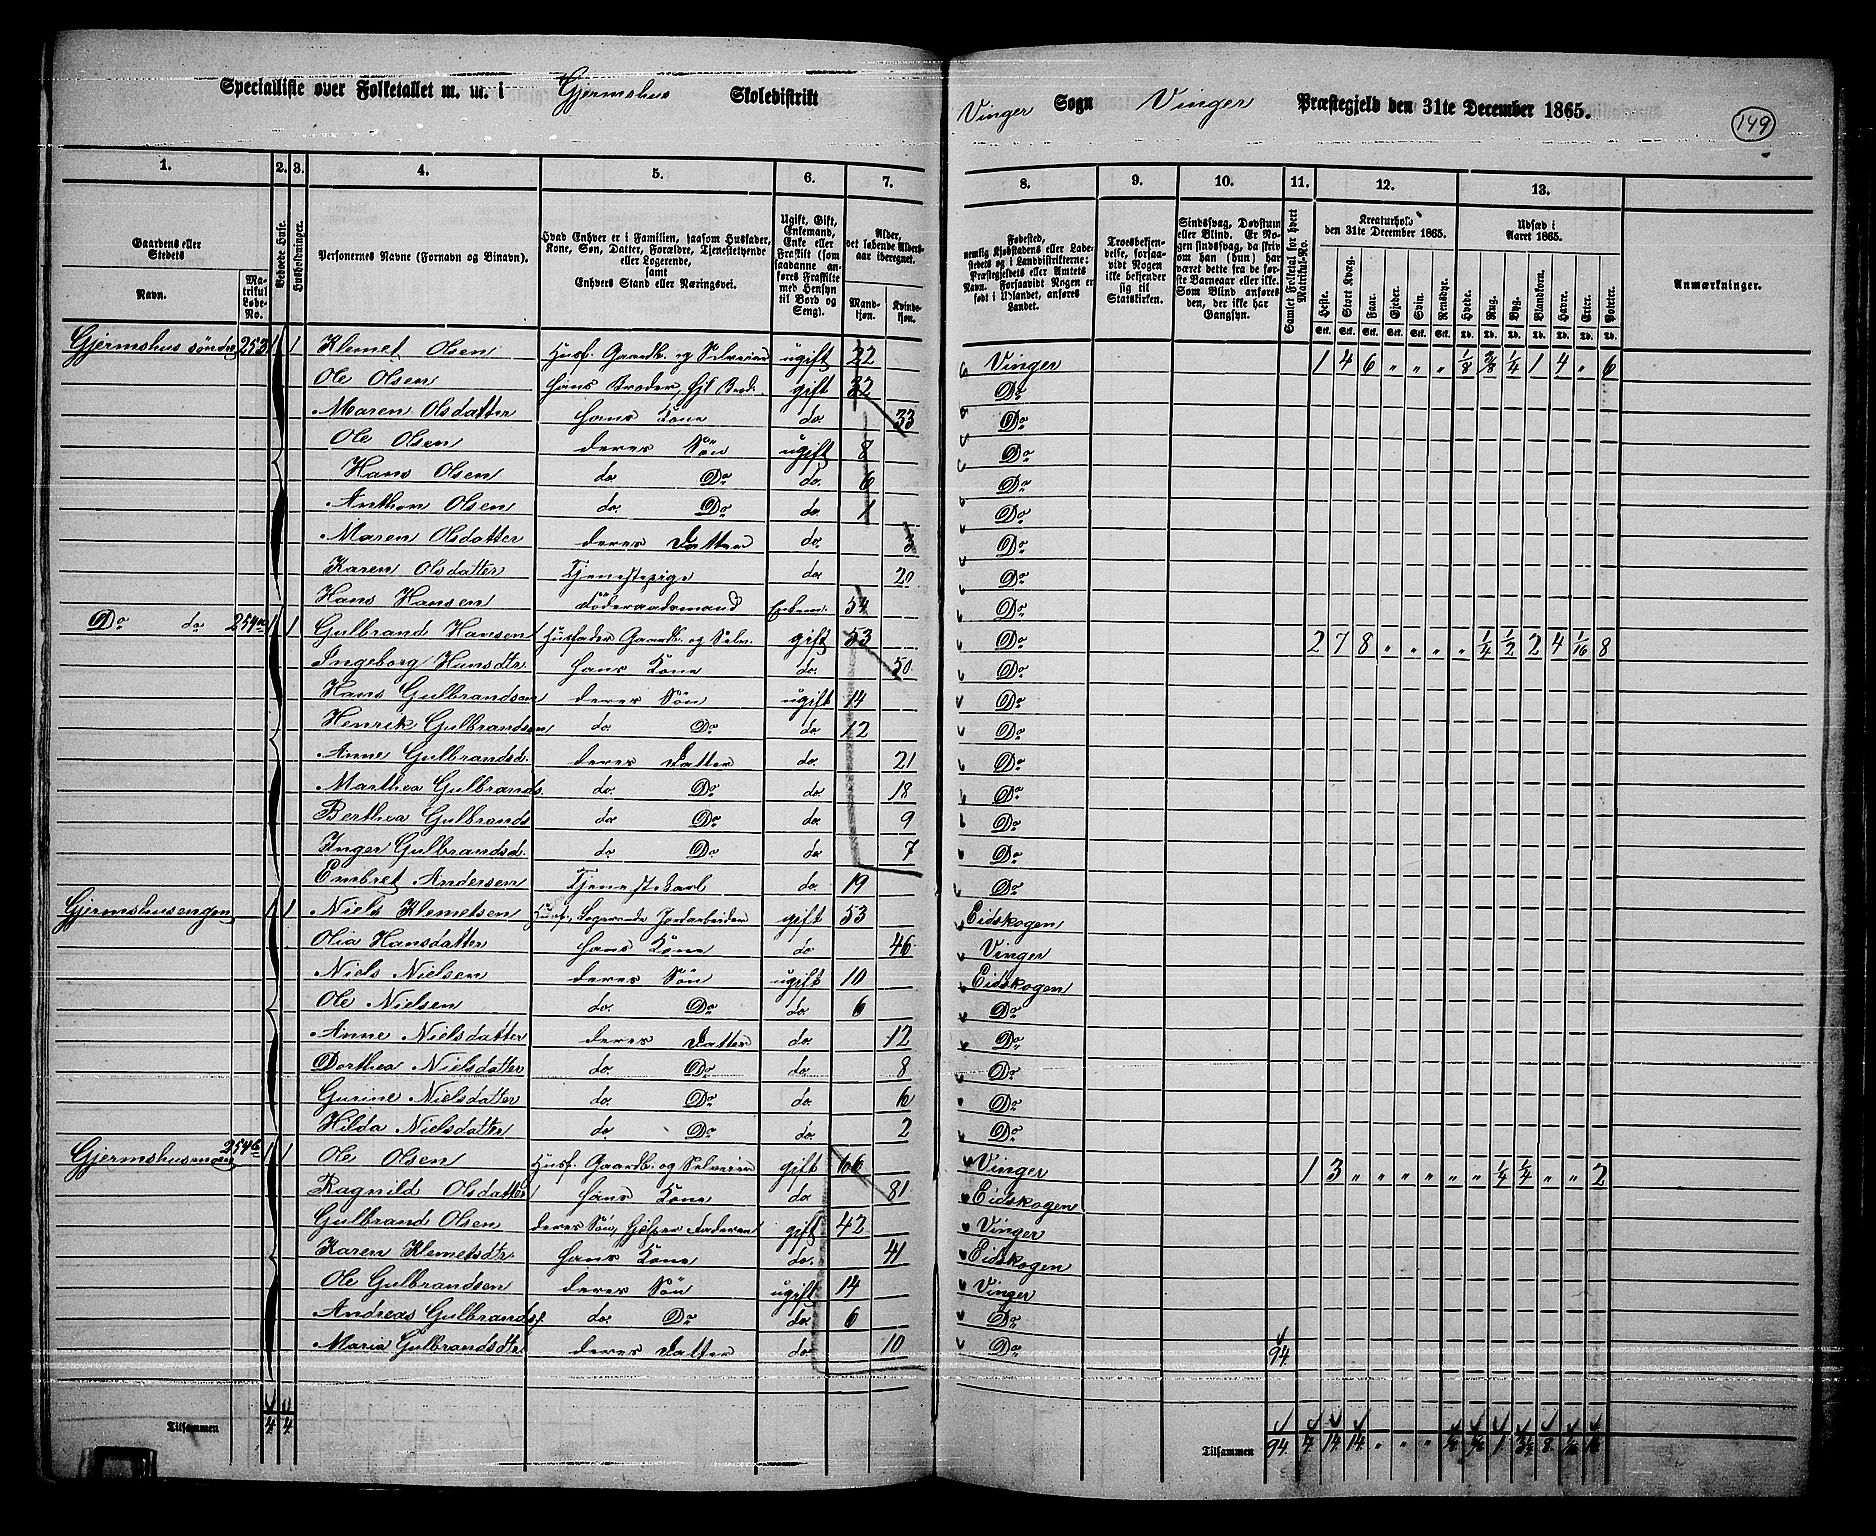 Specialliste over Folketallet m. m. i Gjermshus Skoledistrikt
Vinger Sogn Vinger Præstegjeld den 31te December 1865.
149
1. 2. 3. 4. 5. 6. 7. 8. 9. 10. 11. 12. 13.
Gaardens eller Stedets
Navn.
Matrikul Løbe-No.
Beboede Huse.
Husholdninger.
Personernes Navne (Fornavn og Binavn).
Hvad Enhver er i Familien, saasom Husfader, Kone, Søn, Datter, Forældre, Tjenestetyende eller Logerende, samt Enhvers Stand eller Næringsvei.
Ugift, Gift, Enkemand, Enke eller Fraskilt (som saadanne anføres Fraskilte med Hensyn til Bord og Seng).
Alder, det løbende Aldersaar iberegnet.
Mandkjøn.
Kvindekjøn.
Fødested, nemlig Kjøbstadens eller Ladestedets og i Landdistrikterne: Præstegjeldets eller Amtets Navn. Forsaavidt Nogen er født i Udlandet, anføres Landet.
Troesbekjendelse, forsaavidt Nogen ikke bekjender sig til Statskirken.
Sindssvag, Døvstum eller Blind. Er Nogen sindssvag, da skriv om han (hun) har været dette fra de første Barneaar eller ikke. Som Blind anføres den, der ikke har Gangsyn.
Samlet Folketal for hvert Matrikul-No.
Kreaturhold den 31te December 1865.
Heste. Stort Kvæg. Faar. Gjeder. Svin. Rensdyr.
Udsæd i Aaret 1865.
Hvede. Rug. Byg. Blandkorn. Havre. Erter. Poteter.
Anmærkninger.
Gjermshus søndre 253 1 1 Klemet Olsen Husf. Gaardb. og Selveier ugift 22 Vinger 1 4 6 " " " 1/8 3/8 1/4 1 4 " 6
Ole Olsen Hans Broder, gift 32 Do
Maren Olsdatter Hans Kone do. 33 Do
Ole Olsen deres Søn ugift 8 Do
Hans Olsen do Do do. 6 Do
Anthon Olsen do. Do do. 1 Do
Maren Olsdatter deres Datter do. 3 Do
Karen Olsdatter Tjenestepige do 20 Do
Hans Hansen Føderaadsmand Enkem. 54 Do
Do do 254a 1 1 Gulbrand Hansen Husfader Gaardb. og Selv. gift 53 Do 2 7 8 " " " " 1/4 1/2 2 4 1/16 8
Ingeborg Hansdtr Hans Kone do. 50 Do
Hans Gulbrandsen deres Søn ugift 14 Do
Henrik Gulbrandsen do. Do do 12 Do
Anne Gulbrandsd. deres Datter do. 21 Do
Marthea Gulbrands. do. Do do 18 Do
Berthea Gulbrands do Do do. 9 Do
Inger Gulbrandsd. do Do do 7 Do
Embret Andersen Tjenestekarl do. 19 Do
Gjermshusengen 1 1 Niels Klemetsen Husf., Logerende Jordarbeider gift 53 Eidskogen
Olia Hansdatter Hans Kone do 46 Vinger
Niels Nielsen deres Søn ugift 10 Eidskogen
Ole Nielsen do. Do do 6 Do
Anne Nielsdatter deres Datter do. 12 Do
Dorthea Nielsdatter do. Do do. 8 Do
Gurine Nielsdatter do. Do do. 6 Do
Hilda Nielsdatter do. Do do 2 Do
Gjermshus 254b 1 1 Ole Olsen Husf. Gaardb. og Selveier gift 66 Vinger 1 3 " " " " " " 1/4 1/4 " " 2
Ragnild Olsdatter Hans Kone do 81 Eidskogen
Gulbrand Olsen deres Søn, hjelper Faderen gift 42 Vinger
Karen Klemetsdtr. Hans Kone do. 41 Eidskogen
Ole Gulbrandsen deres Søn ugift 14 Vinger
Andreas Gulbrands. do. Do do. 6 Do
Maria Gulbrandsdtr deres Datter do. 10 Do 94
Tilsammen 4 4
Tilsammen 94 4 14 14 " " "